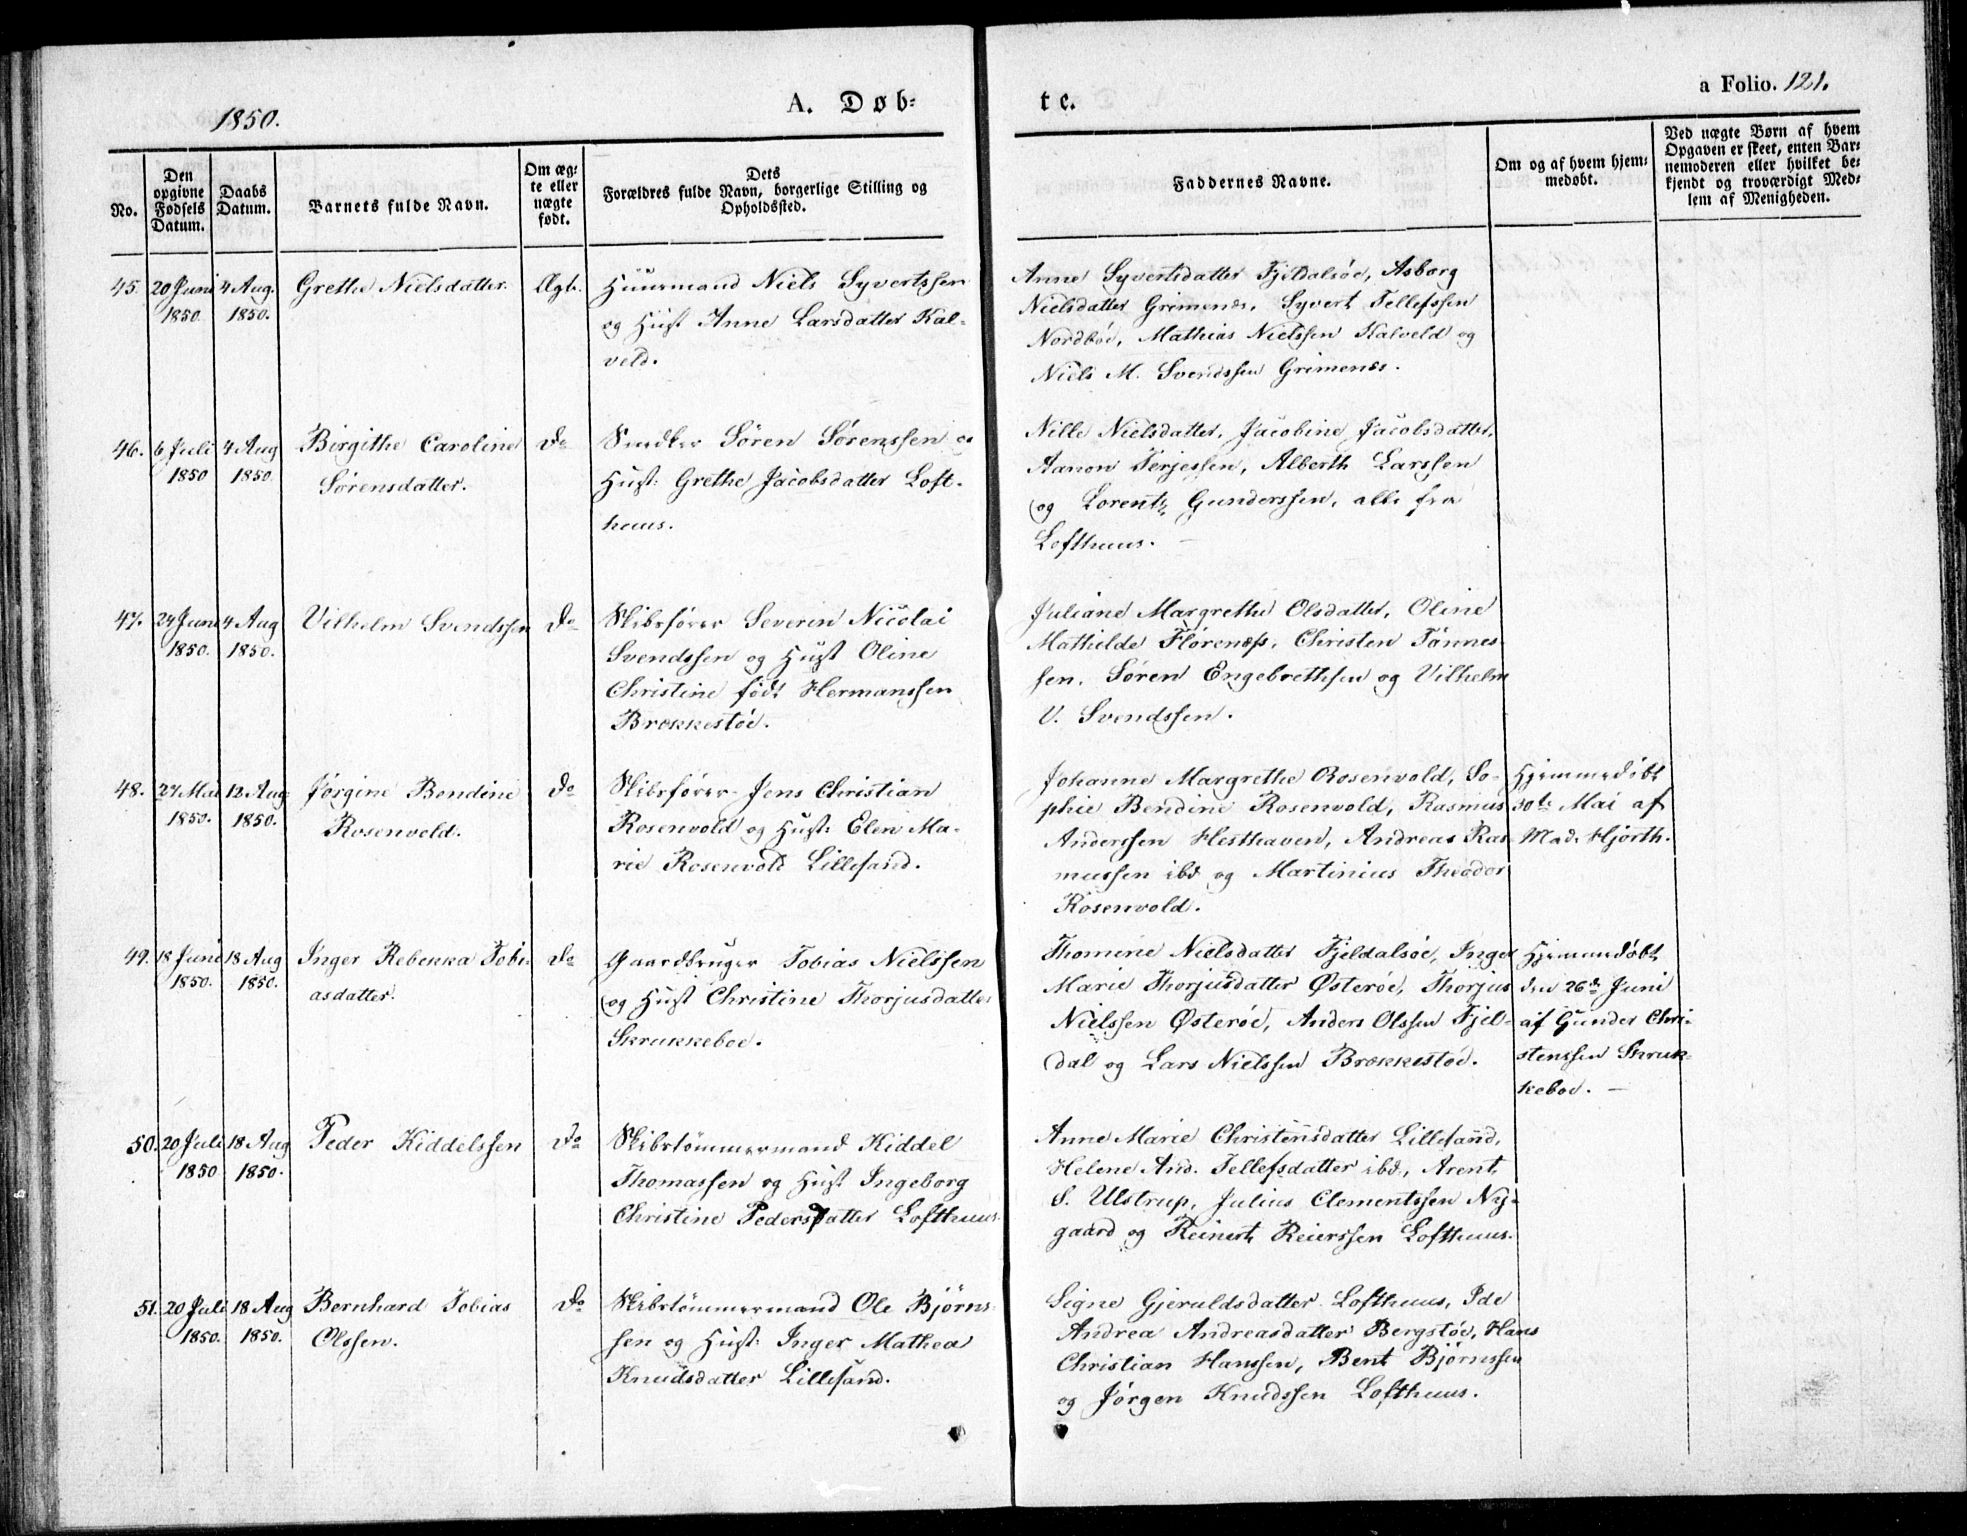 1850.
A. Døb-
te.
a Folio. 121.
No.
Den
opgivne
Fødsels
Datum.
Daabs
Datum.
Barnets fulde Navn.
Om æg-
te eller
uægte
født.
Dets
Forældres fulde Navn, borgerlige Stilling og
Opholdssted.
Faddernes Navne.
Om og af hvem hjem-
medøbt.
Ved uægte Børn af hvem
Opgaven er skeet, enten Bar-
nemoderen eller hvilket be-
kjendt og troværdigt Med-
lem af Menigheden.
45. 20 Juni 1850. 4 Aug. 1850. Grethe Nielsdatter. Ægte.
Huusmand Niels Syvertssen
og Hust Anne Larsdatter Kal-
veld.
Anne Syvertsdatter Fjeldalsöe, Asborg
Nielsdatter Grimenes, Syvert Tellefssen
Nordböe, Mathias Nielssen Kalveld og
Niels M. Svendssen Grimenes.
46. 6 Juli 1850 4 Aug 1850. Birgithe Caroline
Sørensdatter.
Do
Snedker Sören Sörenssen og
Hust: Grethe Jacobsdatter Loft-
huus.
Nille Nielsdatter, Jacobine Jacobsdatter,
Aanon Terjessen, Alberth Larssen
og Lorents Gunderssen, alle fra
Lofthuus.
47. 24 Juni 1850. 4 Aug 1850. Vilhelm Svendssen Do
Skibsfører Severin Nicolai
Svendssen og Hust Oline
Christine født Hermanssen
Brækkestöe.
Juliane Margrethe Olsdatter, Oline
Mathilde Florenæss, Christen Tönnes-
sen, Søren Engebrethsen og Vilhelm
V. Svendssen.
48. 27 Mai 1850. 12 Aug 1850. Jørgine Bendine
Rosenvold.
Do
Skibsfører Jens Christian
Rosenvold og Hust: Elen Ma-
rie Rosenvold Lillesand.
Johanne Margrethe Rosenvold, So-
phie Bendine Rosenvold, Rasmus
Anderssen Hesthaven, Andreas Ras-
mussen ibd og Martinius Theodor
Rosenvold.
Hjemmedøbt
30te Mai af
Mad. Hjorth.
49. 18 Juni 1850. 18 Aug 1850. Inger Rebekka Tobi-
asdatter.
Do
Gaardbruger Tobias Nielssen
og Hust Christine Thorjusdatter
Skrukkeboe.
Thomine Nielsdatter Fjeldalsöe, Inger
Marie Thorjusdatter Østeröe, Thorjus
Nielssen Østeröe, Anders Olssen Fjel-
dal og Lars Nielssen Brækkestöe.
Hjemmedøbt
den 26de Juni
af Gunder Chri-
stenssen Skruk-
keboe.
50. 20 Juli 1850 18 Aug 1850. Peder Kiddelssen Do
Skibstömmermand Kiddel
Thomassen og Hust Ingeborg
Christine Pedersdatter Lofthuus.
Anne Marie Christensdatter Lillesand,
Helene And. Tellefsdatter ibd, Arent
S. Ulstrup, Julius Clementssen Ny-
gaard og Reinert Reierssen Lofthuus.
51. 20 Juli 1850. 18 Aug 1850. Bernhard Tobias
Olssen.
Do
Skibstömmermand Ole Bjørns-
sen og Hust: Inger Mathea
Knudsdatter Lillesand.
Signe Gjeruldsdatter Lofthuus, Ide
Andrea Andreasdatter Bergstöe, Hans
Christian Hanssen, Bent Bjørnssen
og Jørgen Knudssen Lofthuus.